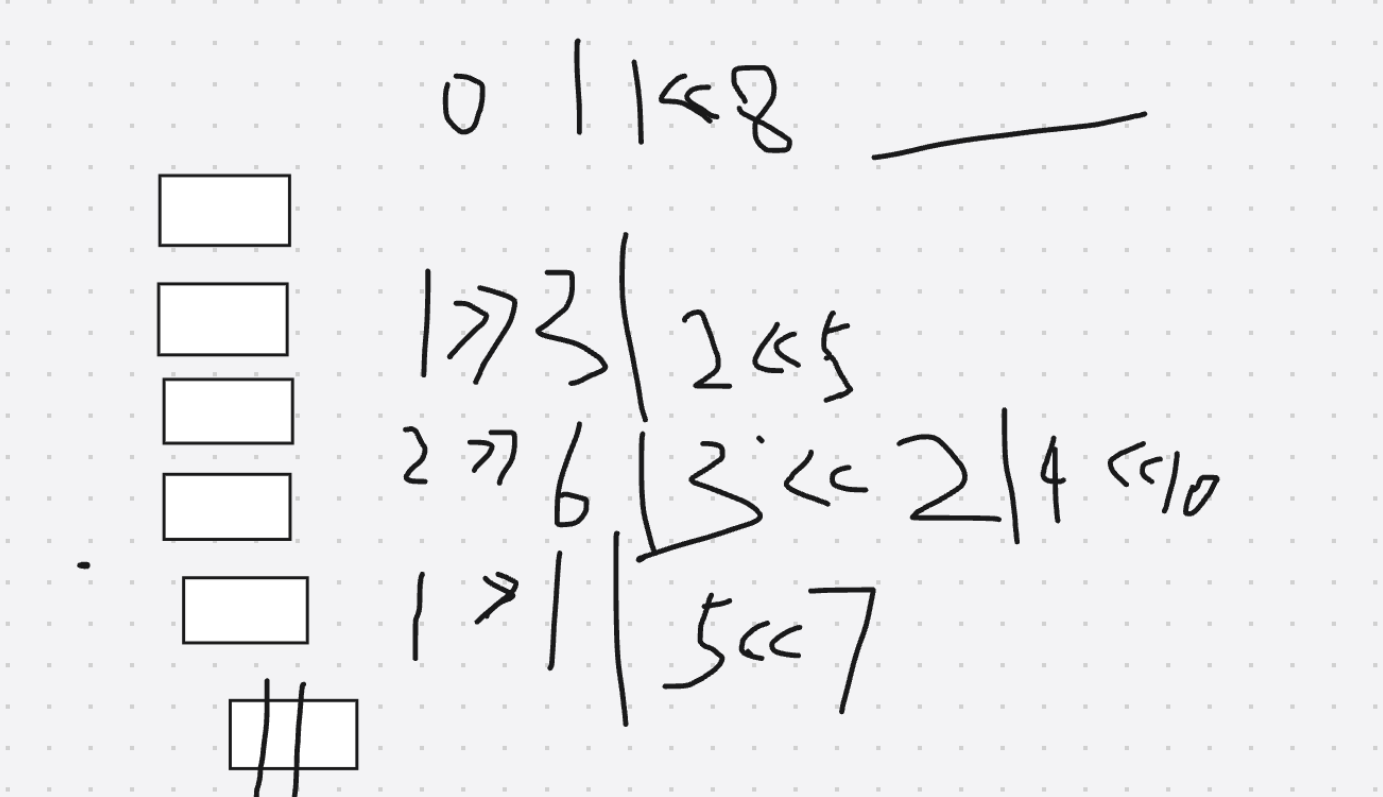 0 | 1 << 8
1 >> 3 | 2 << 5
2 >> 6 | 3 << 2 | 4 << 10
1 >> 1 | 5 << 7